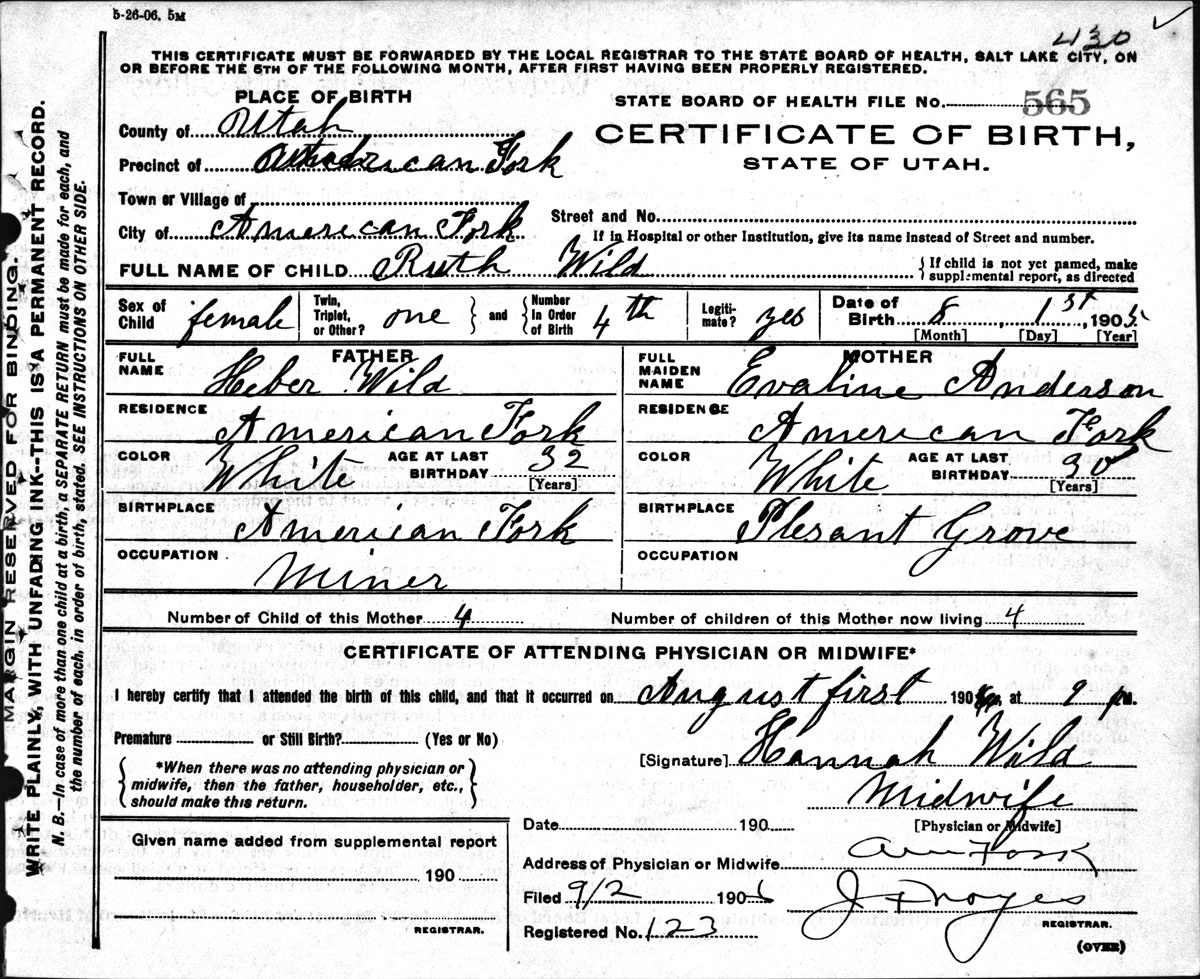 5-26-06. 5M
430
THIS CERTIFICATE MUST BE FORWARDED BY THE LOCAL REGISTRAR TO THE STATE BOARD OF HEALTH, SALT LAKE CITY, ON
OR BEFORE THE 5TH OF THE FOLLOWING MONTH, AFTER FIRST HAVING BEEN PROPERLY REGISTERED.
PLACE OF BIRTH
STATE BOARD OF HEALTH FILE No. 565
County of Utah
CERTIFICATE OF BIRTH,
STATE OF UTAH.
Precinct of American Fork
Town or Village of
Street and No.
City of American Fork
If in Hospital or other Institution, give its name instead of Street and number.
FULL NAME OF CHILD Ruth Wild
{ If child is not yet named, make
supplemental report, as directed
Sex of Child female
Twin, Triplet, or Other? one } and { Number In Order of Birth 4th
Legiti-mate? yes
Date of Birth 8, 1st, 190
[Month] [Day] [Year]
FATHER
FULL NAME Heber Wild
RESIDENCE American Fork
COLOR White AGE AT LAST BIRTHDAY 32 [Years]
BIRTHPLACE American Fork
OCCUPATION Miner
MOTHER
FULL MAIDEN NAME Evaline Anderson
RESIDENCE American Fork
COLOR White AGE AT LAST BIRTHDAY 30 [Years]
BIRTHPLACE Plesant Grove
OCCUPATION
Number of Child of this Mother 4
Number of children of this Mother now living 4
CERTIFICATE OF ATTENDING PHYSICIAN OR MIDWIFE*
I hereby certify that I attended the birth of this child, and that it occurred on August first 190 , at 9 pm.
Premature or Still Birth? (Yes or No)
[Signature] Hannah Wild
{ *When there was no attending physician or
midwife, then the father, householder, etc.,
should make this return. }
Midwife
[Physician or Midwife]
Date 190
Given name added from supplemental report
190
REGISTRAR.
Address of Physician or Midwife Am Fork
Filed 9/2 190
J F Noyes
REGISTRAR.
Registered No. 123
(OVER)
MARGIN RESERVED FOR BINDING.
WRITE PLAINLY, WITH UNFADING INK--THIS IS A PERMANENT RECORD.
N. B.--In case of more than one child at a birth, a SEPARATE RETURN must be made for each, and
the number of each, in order of birth, stated. SEE INSTRUCTIONS ON OTHER SIDE.